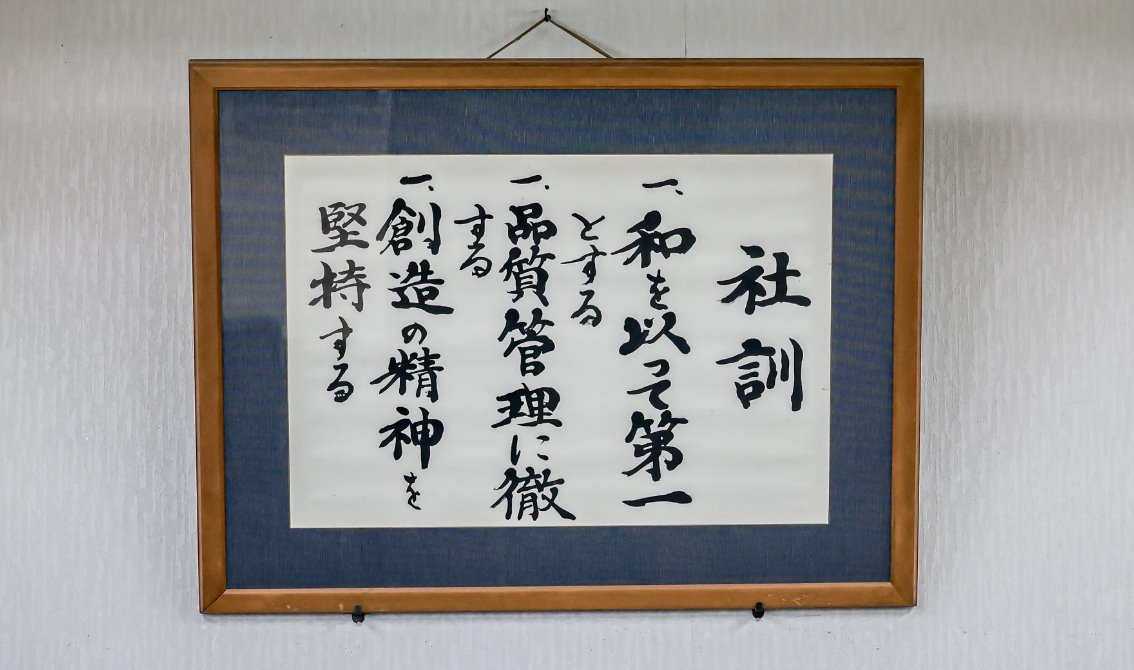 社訓
一、和を以って第一
とする
一、品質管理に徹
する
一、創造の精神を
堅持する